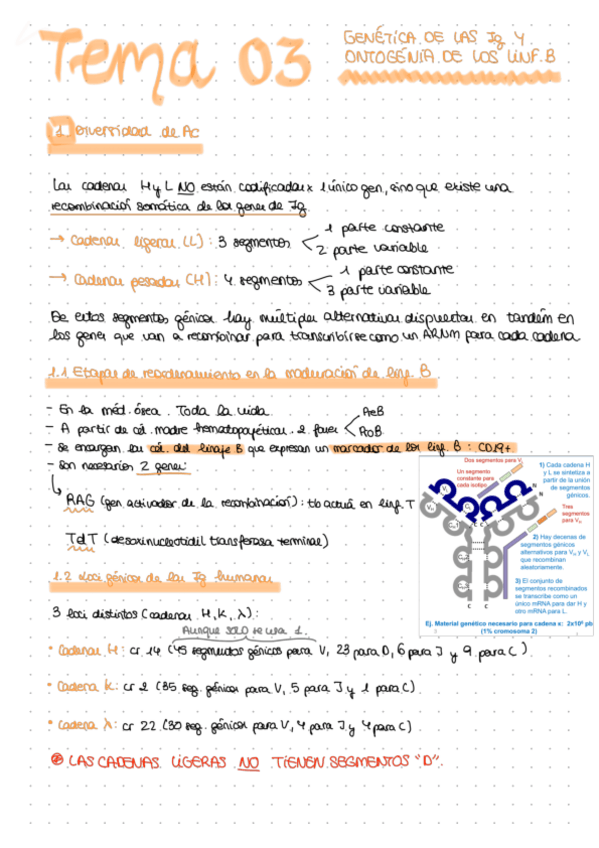 Tema 03
GENÉTICA DE LAS Ig Y
ONTOGÉNIA DE LOS LINF. B
1. Diversidad de Ac
Las cadenas H y L NO están codificadas x 1 único gen, sino que existe una
recombinación somática de los genes de Ig.
→ Cadenas ligeras (L): 3 segmentos
1 parte constante
2 parte variable
→ Cadenas pesadas (H): 4 segmentos
1 parte constante
3 parte variable
De estos segmentos génicos hay múltiples alternativas dispuestas en tandém en
los genes que van a recombinar para transcribirse como un ARNm para cada cadena
1.1 Etapas de reordenamiento en la maduración de linf. B
- En la méd. ósea. Toda la vida.
- A partir de cél. madre hematopoyéticas. 2 fases
AeB
PoB
- Se encargan las cél. del linaje B que expresan un marcador de los linf. B: CD19+
- Son necesarios 2 genes:
RAG (gen activador de la recombinación): tb actúa en linf. T
TdT (desoxinucleotidil transferasa terminal)
Dos segmentos para VL
Un segmento
constante para
cada isotipo
1) Cada cadena H
y L se sintetiza a
partir de la unión
de segmentos
génicos.
Tres
segmentos
para VH
2) Hay decenas de
segmentos génicos
alternativos para VH y VL
que recombinan
aleatoriamente.
3) El conjunto de
segmentos recombinados
se transcribe como un
único mRNA para dar H y
otro mRNA para L.
Ej. Material genético necesario para cadena κ: 2x10⁶ pb
(1% cromosoma 2)
1.2 Loci génicos de las Ig humanas
3 loci distintos (cadenas H, K, λ):
Aunque SOLO se usa 1.
• Cadenas H: cr 14 (45 segmentos génicos para V, 23 para D, 6 para J y 9 para C).
• Cadena K: cr 2 (35 seg. génicos para V, 5 para J y 1 para C).
• Cadena λ: cr 22 (30 seg. génicos para V, 4 para J y 4 para C)
⊛ LAS CADENAS LIGERAS NO TIENEN SEGMENTOS "D".